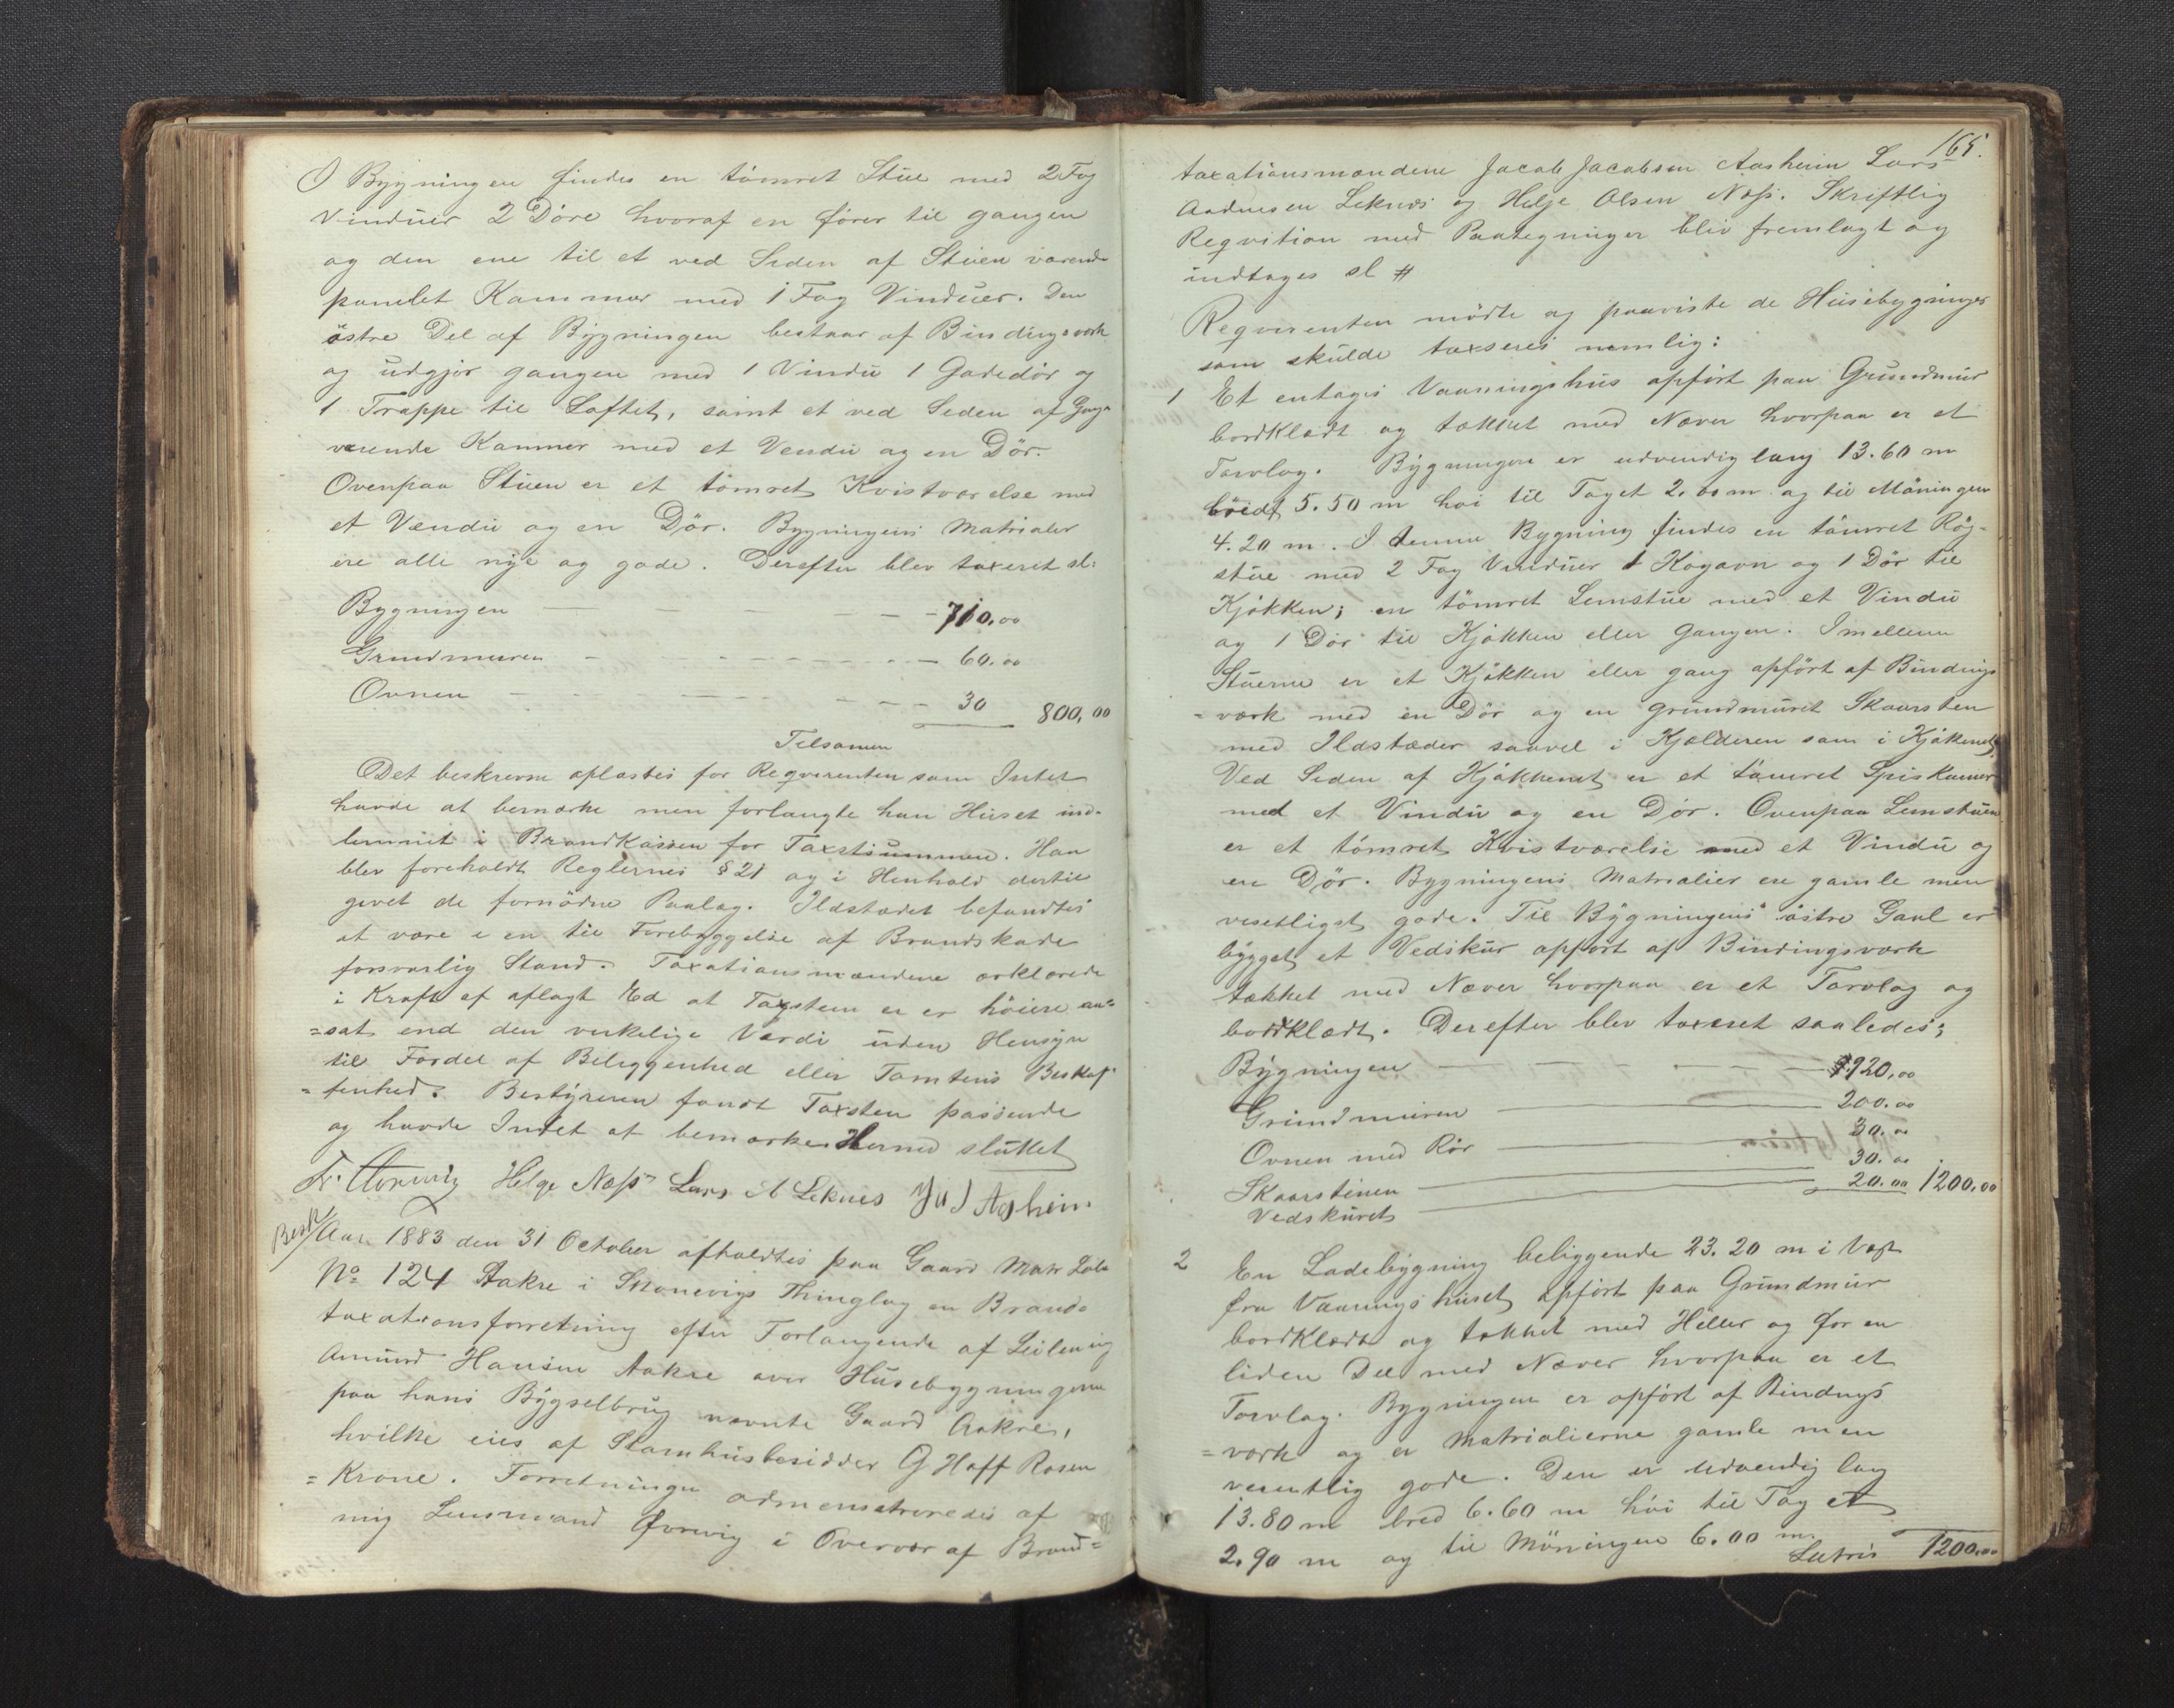 I Bygningen findes en tömret Stue med 2 Fag
Vinduer 2 Döre hvoraf en förer til gangen
og den ene til et ved Siden af Stuen værende
panelet Kammer med 1 Fag Vinduer. Den
östre Del af Bygningen bestaar af Bindingsværk
og udgjör gangen med 1 Vindu 1 Gadedör og
1 Trappe til Loftet, samt et ved Siden af Gangen
værende Kammer med et Vendu og en Dör.
Ovenpaa Stuen er et tömret Kvistværelse med
et Vendu og en Dör. Bygningens Matrialer
ere alle nye og gode. Derefter blev taxeret sl:
Bygningen — 710.00
Grundmuren — 60.00
Ovnen — 30
800,00
Tilsamen
Det beskrevne oplæstes for Reqvirenten som Intet
havde at bemærke men forlangte han Huset ind-
lemmet i Brandkassen for Taxtsummen. Han
blev foreholdt Reglernes § 21 og i Henhold dertil
givet de fornödne Paalæg. Ildstædet befandtes
at være i en til Forebyggelse af Brandskade
forsvarlig Stand. Taxationsmændene erklærede
i Kraft af aflagt Ed at Taxsten er höiere an=
=sat end den verkelige Værdi uden Hensyn
til Fordel af Beliggenhed eller Tomtens Beskaf
=fenhed. Bestyreren fandt Taxsten passende
og havde Intet at bemærke. Hermed sluttet
Helge Næss Lars A Leknes
Besk/ Aar 1883 den 31 October afholdtes paa Gaard Matr Löbe
No 124 Aakre i Skonevigs Thinglag en Brands
taxationsforretning efter Forlangende af Leilænding
Amund Hansen Aakre over Husebygningerne
paa hans Bygselbrug nævnte Gaard Aakre,
hvilke eies af Stamhusbesidder G Hoff Rosen
=Krone. Forretningen admenestreredes af
mig Lensmand i Overvær af Brand=
165.
taxationsmændene Jacob Jacobsen Aasheim Lars
Andersen Leknes og Helje Olsen Næss. Skriftlig
Reqvition med Paategninger blev fremlagt og
indtages sl #
Reqvirenten mödte og paaviste de Husebygninger
som skulde taxseres nemlig:
1 Et entages Vaaningshus opfört paa Grundmur
bordklædt og tækket med Næver hvorpaa er et
Torvlag. Bygningen er udvendig lang 13.60 m
breidt 5.50 m höi til Taget 2.00 m og til Möningen
4.20 m. I denne Bygning findes en tömret Rög-
stue med 2 Fag Vinduer 1 Kogovn og 1 Dör til
Kjökken; en tömret Lemstue med et Vindu
og 1 Dör til Kjökken eller gangen. Imellem
Stuerne er et Kjökken eller gang opfört af Bindings
=værk med en Dör og en grundmuret Skaarsten
med Ildstæder saavel i Kjælderen som i Kjökenet.
Ved Siden af Kjökkenet er et tömret Spiskamer
med et Vindu og en Dör. Ovenpaa Lemstuen
er et tömret Kvistværelse med et Vindu og
en Dör. Bygningens Matrialier ere gamle men
vesetligst gode. Til Bygningens östre Gavl er
bygget et Vedskur opfört af Bindingsværk
tækket med Næver hvorpaa er et Torvlag og
bordklædt. Derefter blev taxeret saaledes:
Bygningen — 920.00
Grundmuren — 200.00
Ovnen med Rör — 30.00
Skaarstenen — 30.00
Vedskuret — 20.00 1200,00
2 En Ladebygning beliggende 23.20 m i Vest
fra Vaaningshuset opfört paa Grundmur
bordklædt og tækket med Heller og for en
liden Del med Næver hvorpaa er et
Torvlag. Bygningen er opfört af Bindngs
=værk og er Matrialierne gamle men
vesentlig gode. Den er udvendig lang
13.80 m bred 6.60 m höi til Taget
2.90 m og til Möningen 6.00 m.
Latris 1200,00